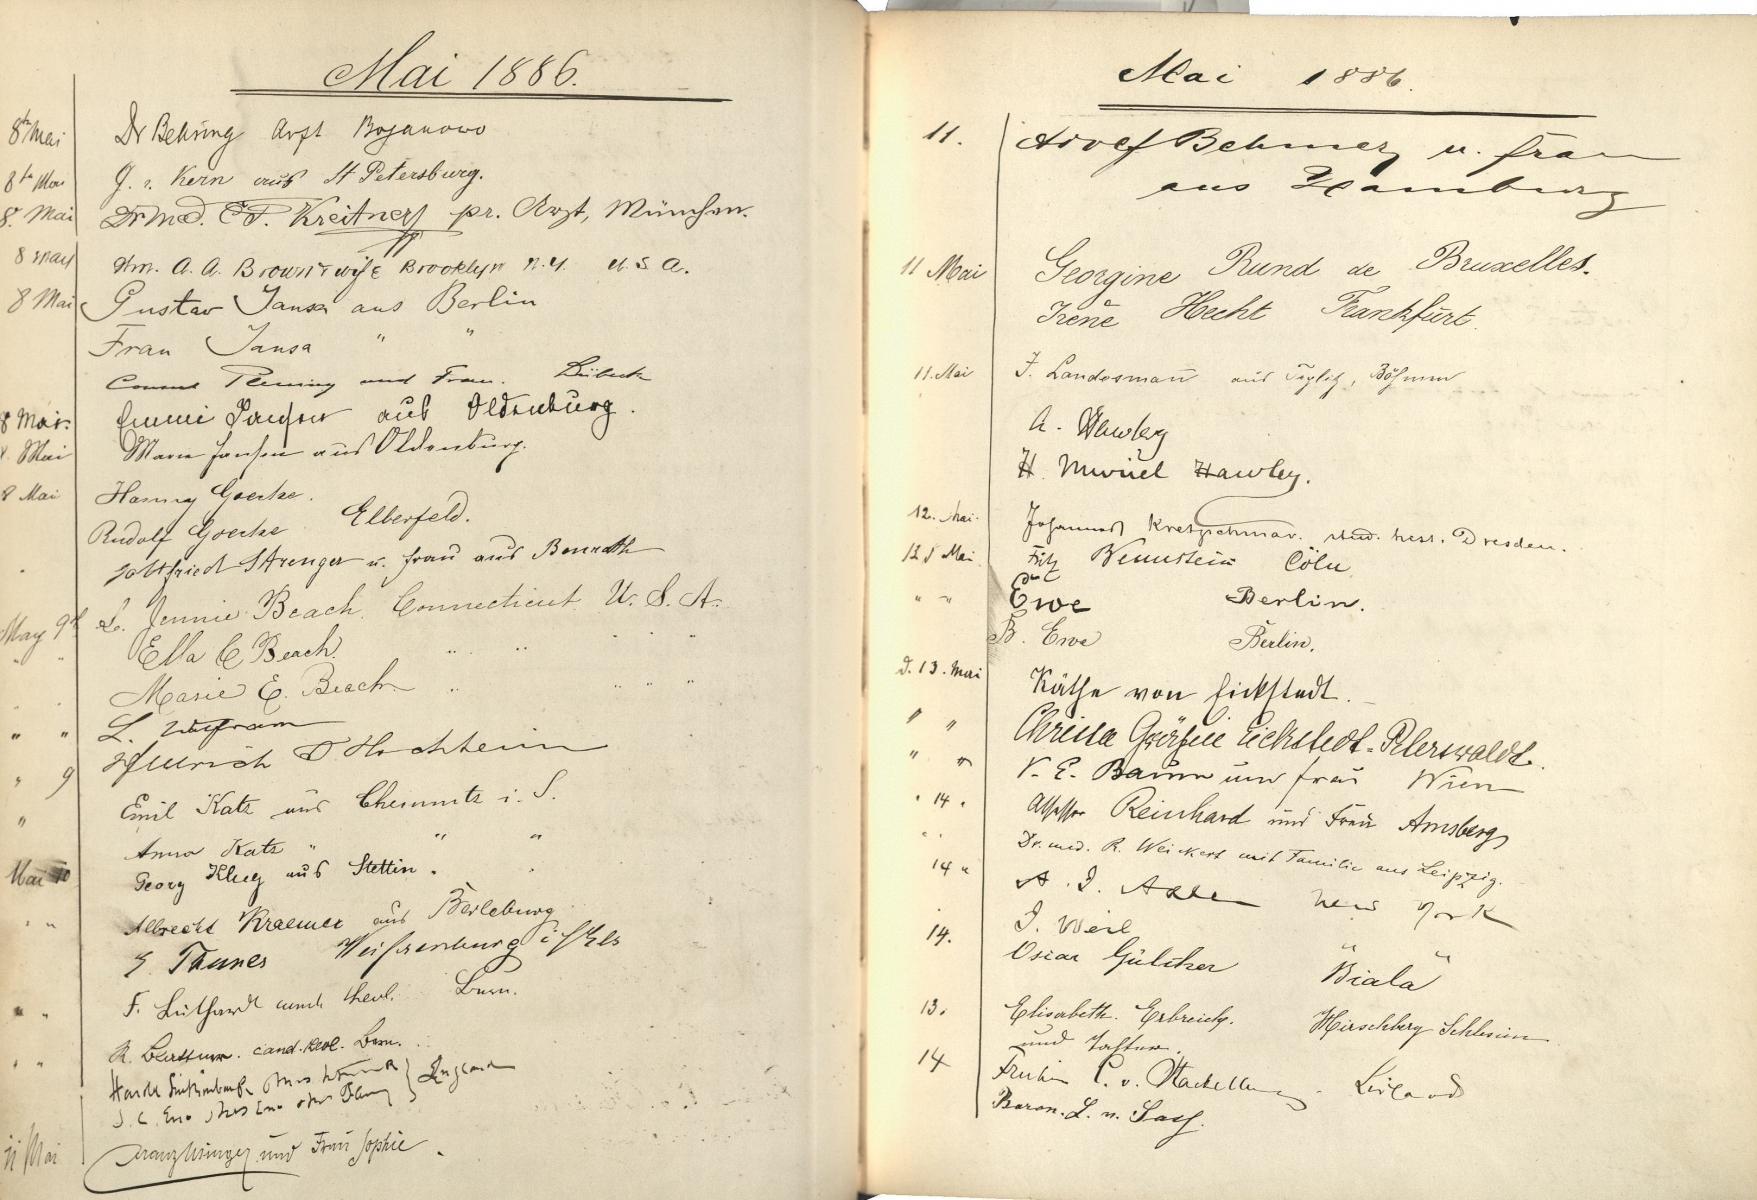 Mai 1886.
8ten Mai Dr Behring Arzt Bojanowo
8ten Mai G. v. Kern aus St Petersburg.
8. Mai Dr Med. Kreitner pr. Arzt, München.
8 May Wm. A. A. Brown & wife Brooklyn N.Y. U.S.A.
8 Mai Gustav Jansa aus Berlin
Frau Jansa " "
und Frau. Lübeck
8 Mai Emmi Janssen aus Oldenburg.
8. Mai Marie Janssen aus Oldenburg.
8 Mai Hanny Goecke.
Rudolf Goecke Elberfeld.
Gottfried Strenger u. Frau aus Benrath
May 9th L. Jennie Beach. Connecticut U.S.A.
" " Ella C Beach. " " " " "
Marie E. Beach " " " "
" " L.
" 9 Hochheim
" Emil Katz aus Chemnitz i. S.
Anna Katz " " "
Mai 10 Georg Klug aus Stettin.
" " Albrecht Kraemer aus Berleburg
Weissenburg i/Els
" " F. Lüthardt cand. theol. Bern.
" " R. cand. theol. Bern.
England
11 Mai und Frau Sophie.
Mai 1886.
11. Adolf Behmer u. Frau
aus Hamburg
11 Mai Georgine Rund de Bruxelles.
Irene Hecht Frankfurt.
11. Mai J. Landesmann aus Teplitz, Böhmen
A. Hawley
H. Muriel Hawley.
12. Mai. Johannes Kretzschmar. Dresden.
12 Mai Fritz Cöln
" " Ewe Berlin.
B. Ewe Berlin.
d. 13. Mai Käthe von Eickstedt.
" " Christa Gräfin Eickstedt-Peterswaldt.
" " V. E. Baum und Frau Wien
" 14. Assessor Reinhard und Frau Arnsberg
" " Dr. med. R. Weickert mit Familie aus Leipzig.
14 " A. J. New York
J. Weil " "
14. Oscar Gülcher Biala
13. Elisabeth Erbreich. Hirschberg Schlesien
und Tochter.
14 v. Livland
Baron. L. v. Sass.